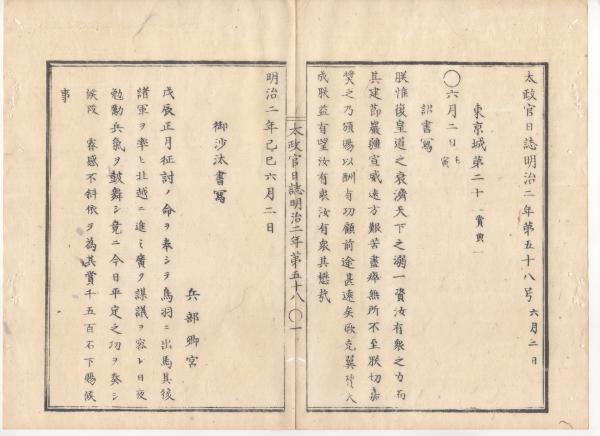 太政官日誌明治二年第五十八号 六月二日
東京城第二十 賞典一
○六月二日
詔書寫
朕惟復皇道之衰濟天下之溺一資汝有衆之力而
其建節巖疆宣威遠方艱苦盡瘁無所不至朕切嘉
奨之乃頒賜以酬有功顧前途甚遠矣
成朕益有望汝有衆汝有衆其懋哉
太政官日誌明治二年第五十八 ○一
明治二年己巳六月二日
御沙汰書寫
兵部卿宮
戊辰正月征討ノ命ヲ奉シヲ鳥羽ニ出馬其後
諸軍ヲ率ヒ北越ニ進ミ廣ク謀議ヲ容レ日夜
勉勵兵氣ヲ鼓舞シ竟ニ今日平定之功ヲ奏シ
候段 叡感不斜依ヲ為其賞千五百石下賜候
事